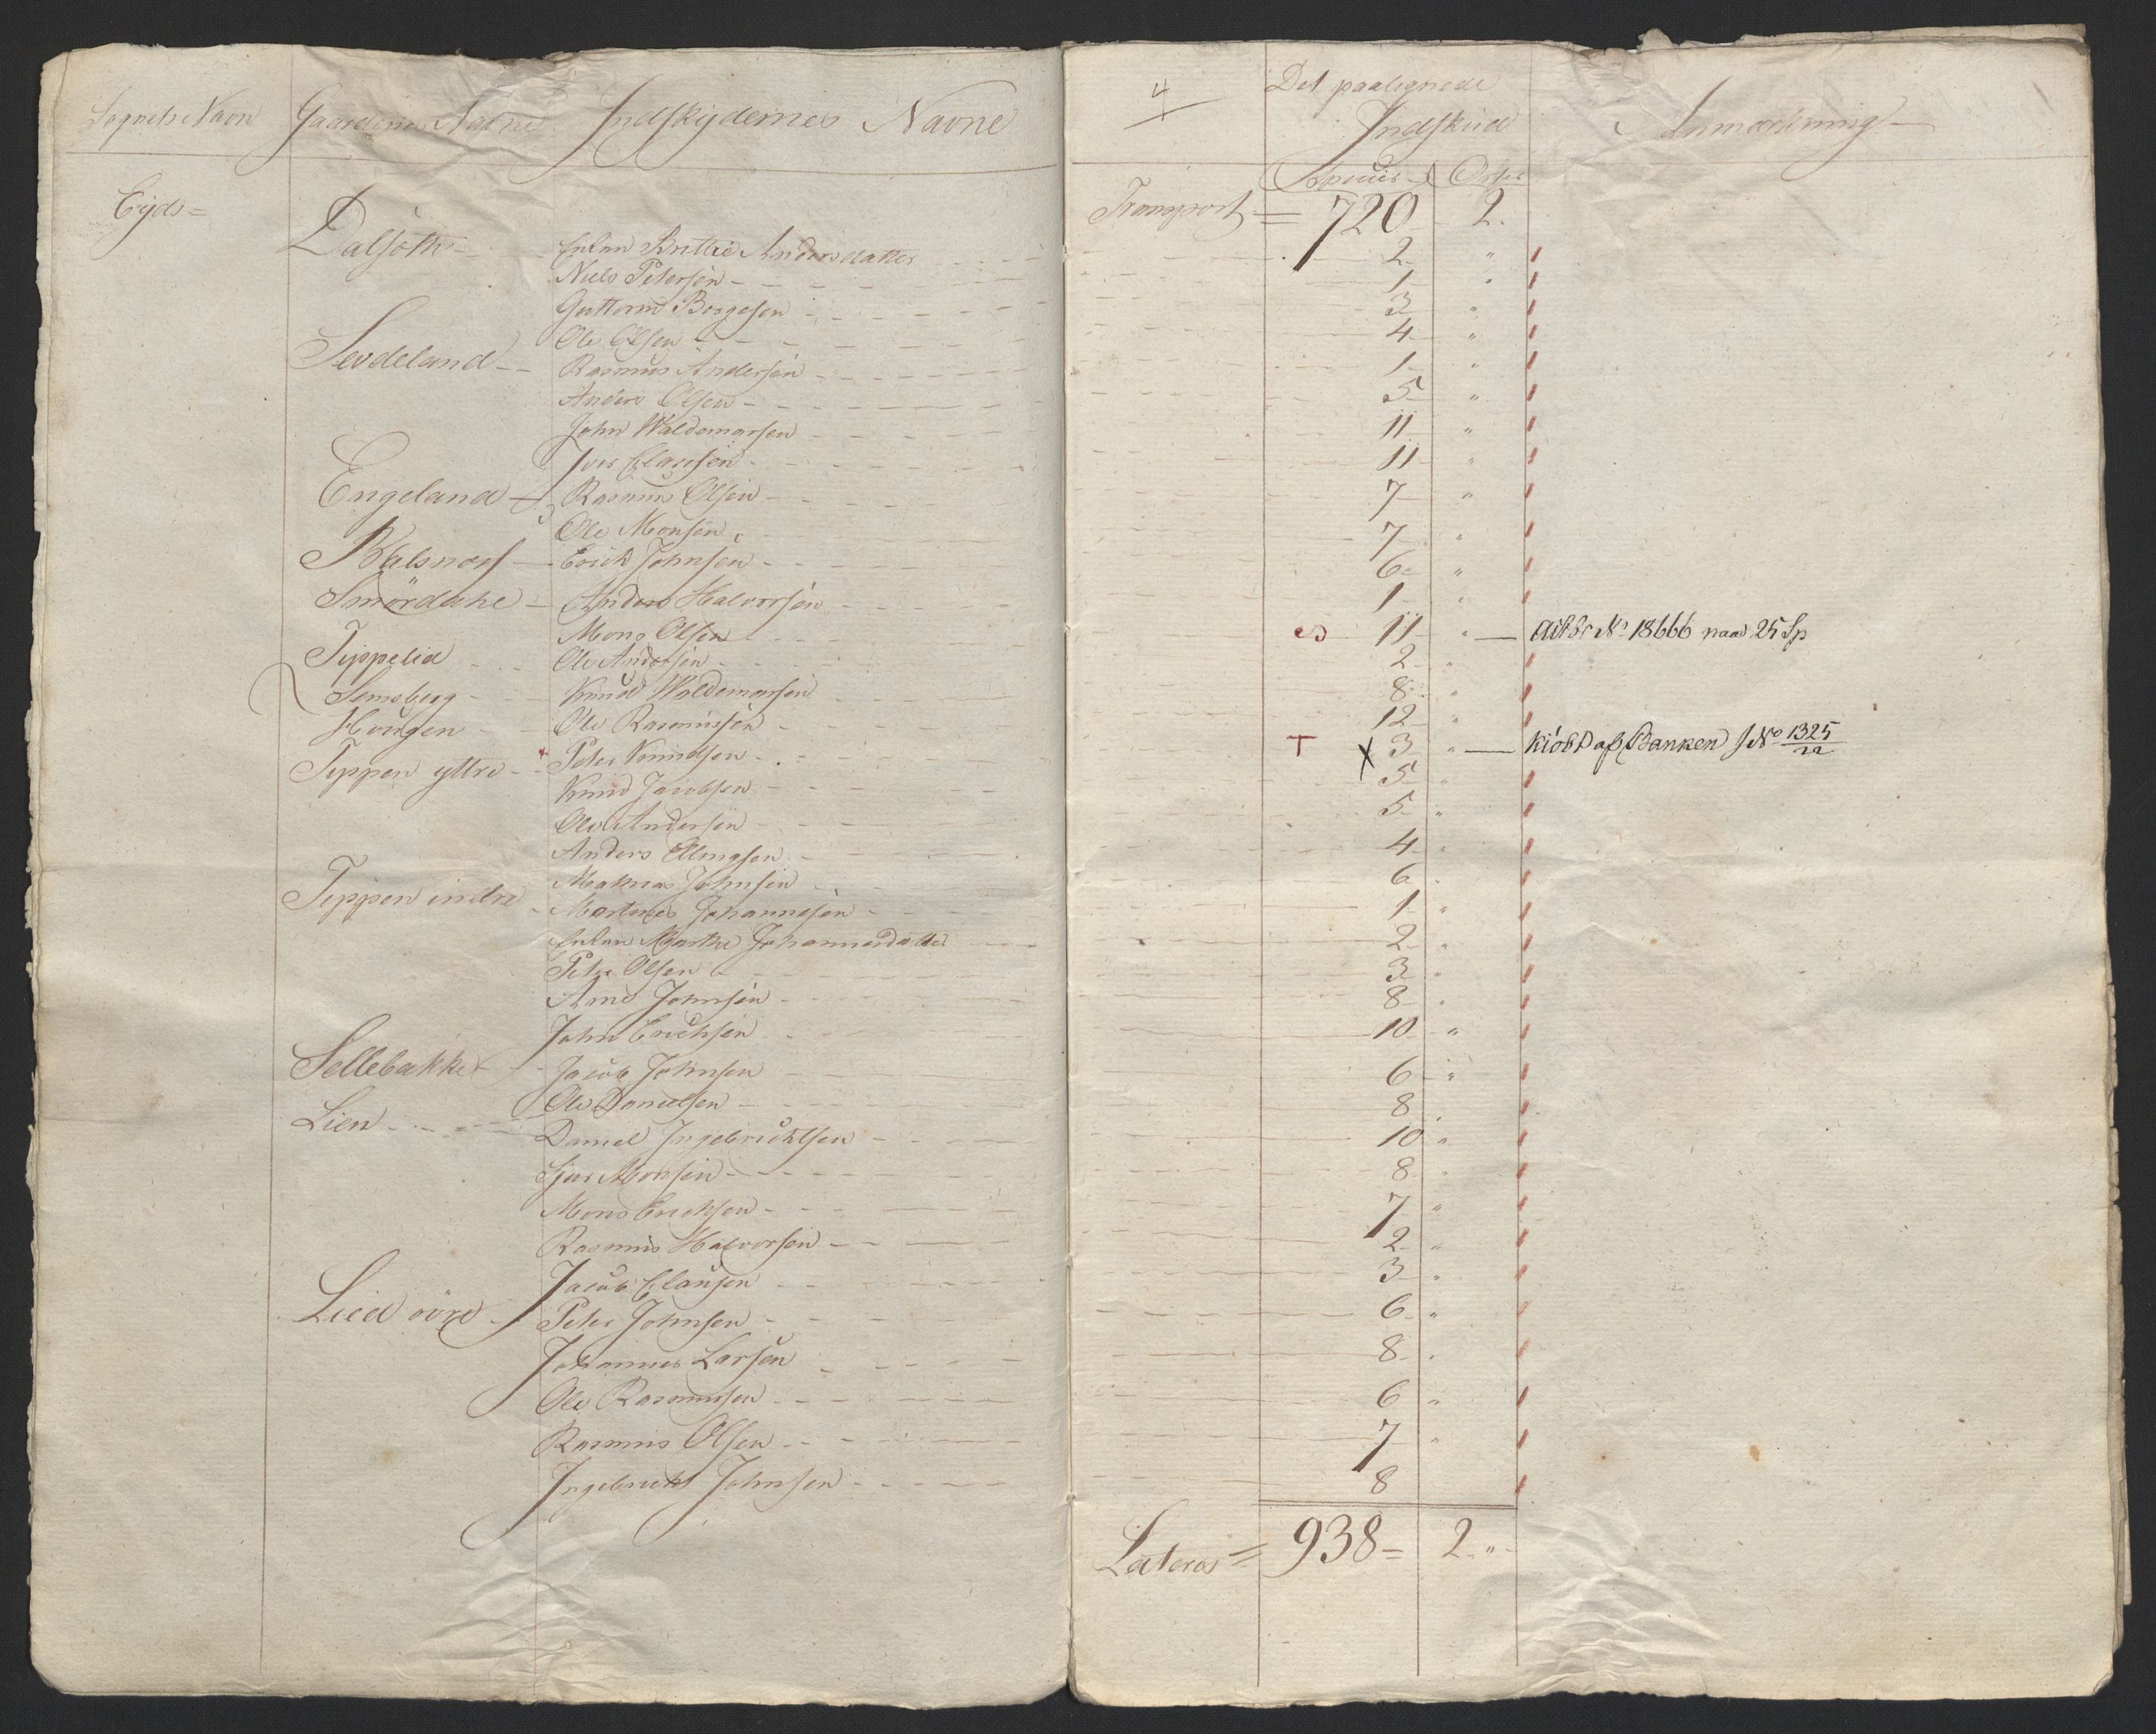 Sognets Navn Gaardenes Navne Indskydernes Navne
Eyds=
Dalsøth - Enken Brithe Andersdatter
Niels Petersen
Guttorm Børgesen
Ole Olsen
Sevdeland - Rasmus Andersen
Anders Olsen
John Waldemarsen
Iver Clausen
Engeland - Rasmus Olsen
Ole Monsen
Balsnæs - Erich Johnsen
Smördahl - Anders Halvorsen
Mons Olsen
Teppelid Ole Andersen
Semsberg - Knud Waldemarsen
Hougen - Ole Rasmussen
Teppen yttre - Peter Knudsen
Knud Jacobsen
Ole Andersen
Anders Ellingsen
Maknas Johnsen
Teppen indre - Martines Johannesen
Enken Marthe Johannesdatter
Peter Olsen
Arne Johnsen
John Erichsen
Sellebakke - Jacob Johnsen
Ole Danielsen
Lien - Daniel Ingebrichtsen
Monsen
Mons Erichsen
Rasmus Halvorsen
Jacob Clausen
Lied övre - Peter Johnsen
Johannes Larsen
Ole Rasmussen
Rasmus Olsen
Ingebricht Johnsen
4
Det paalignede
Indskud Anmærkning
Species Orter
Transport = 720 2.
2 "
1 "
3 "
4 "
1 "
5 "
11 "
11 "
7 "
7 "
6 "
1 "
11 " — No 18666 paa 25 Sp
2 "
8 "
12 "
T X 3 " — Kiöbt af Banken J No 1325/22
5 "
5 "
4 "
6 "
1 "
2 "
3 "
8 "
10 "
6 "
8 "
10 "
8 "
7 "
2 "
3 "
6 "
8 "
6 "
7 "
8
Lateris = 938= 2 "